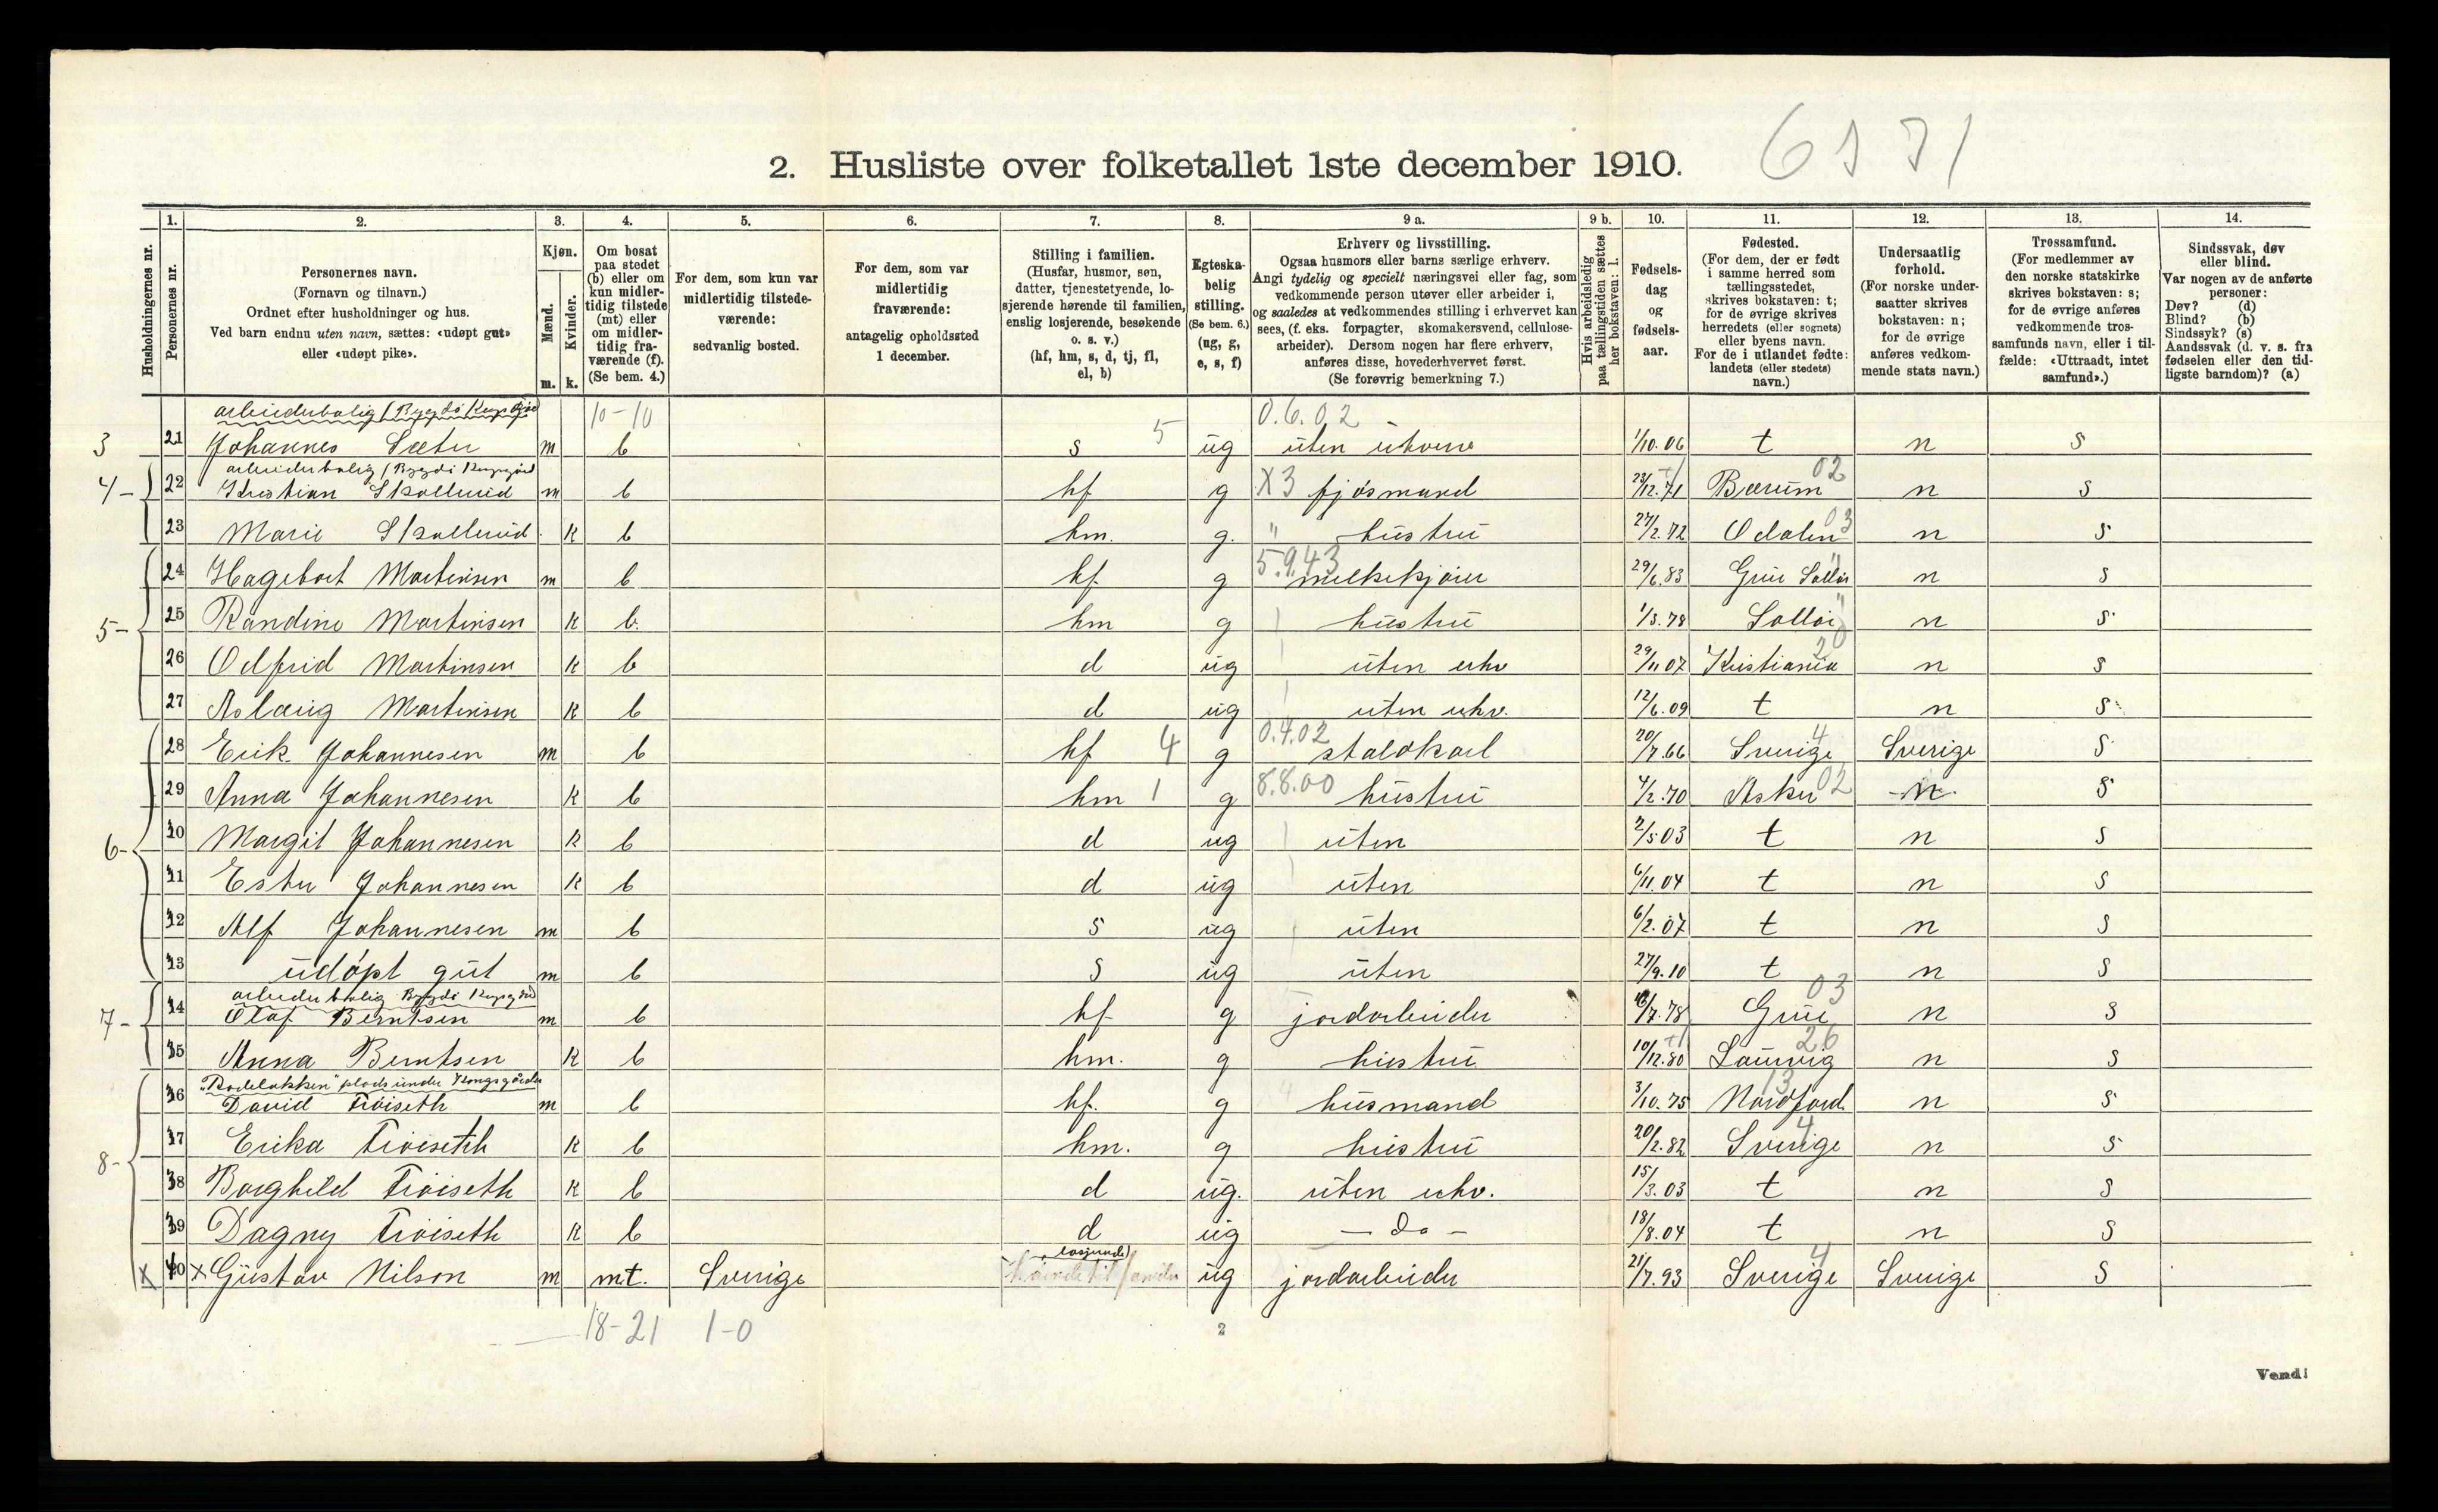 6571
2. Husliste over folketallet 1ste december 1910.
1. 2. 3. 4. 5. 6. 7. 8. 9 a. 9 b. 10. 11. 12. 13. 14.
Husholdningernes nr.
Personernes nr.
Personernes navn.
(Fornavn og tilnavn.)
Ordnet efter husholdninger og hus.
Ved barn endnu uten navn, sættes: «udøpt gut»
eller «udøpt pike».
Kjøn.
Mænd.
Kvinder.
m. k.
Om bosat
paa stedet
(b) eller om
kun midler-
tidig tilstede
(mt) eller
om midler-
tidig fra-
værende (f).
(Se bem. 4.)
For dem, som kun var
midlertidig tilstede-
værende:
sedvanlig bosted.
For dem, som var
midlertidig
fraværende:
antagelig opholdssted
1 december.
Stilling i familien.
(Husfar, husmor, søn,
datter, tjenestetyende, lo-
sjerende hørende til familien,
enslig losjerende, besøkende
o. s. v.)
(hf, hm, s, d, tj, fl,
el, b)
Egteska-
belig
stilling.
(Se bem. 6.)
(ug, g,
e, s, f)
Erhverv og livsstilling.
Ogsaa husmors eller barns særlige erhverv.
Angi tydelig og specielt næringsvei eller fag, som
vedkommende person utøver eller arbeider i,
og saaledes at vedkommendes stilling i erhvervet kan
sees, (f. eks. forpagter, skomakersvend, cellulose-
arbeider). Dersom nogen har flere erhverv,
anføres disse, hovederhvervet først.
(Se forøvrig bemerkning 7.)
Hvis arbeidsledig
paa tællingstiden sættes
her bokstaven: l.
Fødsels-
dag
og
fødsels-
aar.
Fødested.
(For dem, der er født
i samme herred som
tællingsstedet,
skrives bokstaven: t;
for de øvrige skrives
herredets (eller sognets)
eller byens navn.
For de i utlandet fødte:
landets (eller stedets)
navn.)
Undersaatlig
forhold.
(For norske under-
saatter skrives
bokstaven: n;
for de øvrige
anføres vedkom-
mende stats navn.)
Trossamfund.
(For medlemmer av
den norske statskirke
skrives bokstaven: s;
for de øvrige anføres
vedkommende tros-
samfunds navn, eller i til-
fælde: «Uttraadt, intet
samfund».)
Sindssvak, døv
eller blind.
Var nogen av de anførte
personer:
Døv? (d)
Blind? (b)
Sindssyk? (s)
Aandssvak (d. v. s. fra
fødselen eller den tid-
ligste barndom)? (a)
arbeiderbolig (Bygdö Kongsgård 10-10 0.6.02
3 21 Johannes Sæter m b s 5 ug uten erhverv 1/10.06 t n s
arbeiderbolig (Bygdö Kongsgård
4- 22 Kristian Skollerud m b hf g X3 fjösmand 23/12.71 Bærum 02 n s
23 Marie Skollerud k b hm. g. " hustru 27/2.72 Odalen 03 n s
24 Hagebart Martinsen m b hf g 5.9.43 melkekjörer 29/6.83 Grue Sollör n s
5- 25 Randine Martinsen k b. hm g hustru 1/3.78 Sollör n s
26 Odfrid Martinsen k b d ug uten erhv 29/11 07 Kristiania 20 n s
27 Aslaug Martinsen k b d ug uten erhv. 12/6.09 t n s
28 Erik Johannesen m b hf 4 g 0.4.02 staldkarl 20/7.66 Sverige 4 Sverige s
29 Anna Johannesen k b hm 1 g 8.8.00 hustru 4/2.70 Asker 02 n s
6- 30 Margit Johannesen k b d ug uten 2/5 03 t n s
31 Ester Johannesen k b d ug uten 6/11.04 t n s
32 Alf Johannesen m b s ug uten 6/2.07 t n s
33 udöpt gut m b s ug uten 27/9.10 t n s
arbeiderbolig Bygdö Kongsgård
7- 34 Olaf Berntsen m b hf g jordarbeider /7.78 Grue 03 n s
35 Anna Berntsen k b hm. g hustru 10/12.80 Laurvig 26 n s
"Rodeløkken" plads under Kongsgården
36 David Tröiseth m b hf. g husmand 3/10.75 Nordfjord 13 n s
8- 37 Erika Tröiseth k b hm. g hustru 20/2.82 Sverige 4 n s
38 Borghild Tröiseth k b d ug. uten erhv. 15/3.03 t n s
39 Dagny Tröiseth k b d ug — do — 18/8.04 t n s
losjerende
X 40 X Gustav Nilson m mt. Sverige ug jordarbeider 21/7.93 Sverige 4 Sverige s
18-21 1-0
2
Vend!